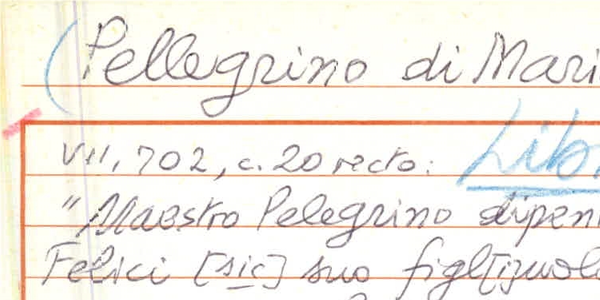 (Pellegrino di Mari
VII, 702, c. 20 recto: Lib
"Maestro Pelegrino dipen
Felici [sic] suo figl[i]uol